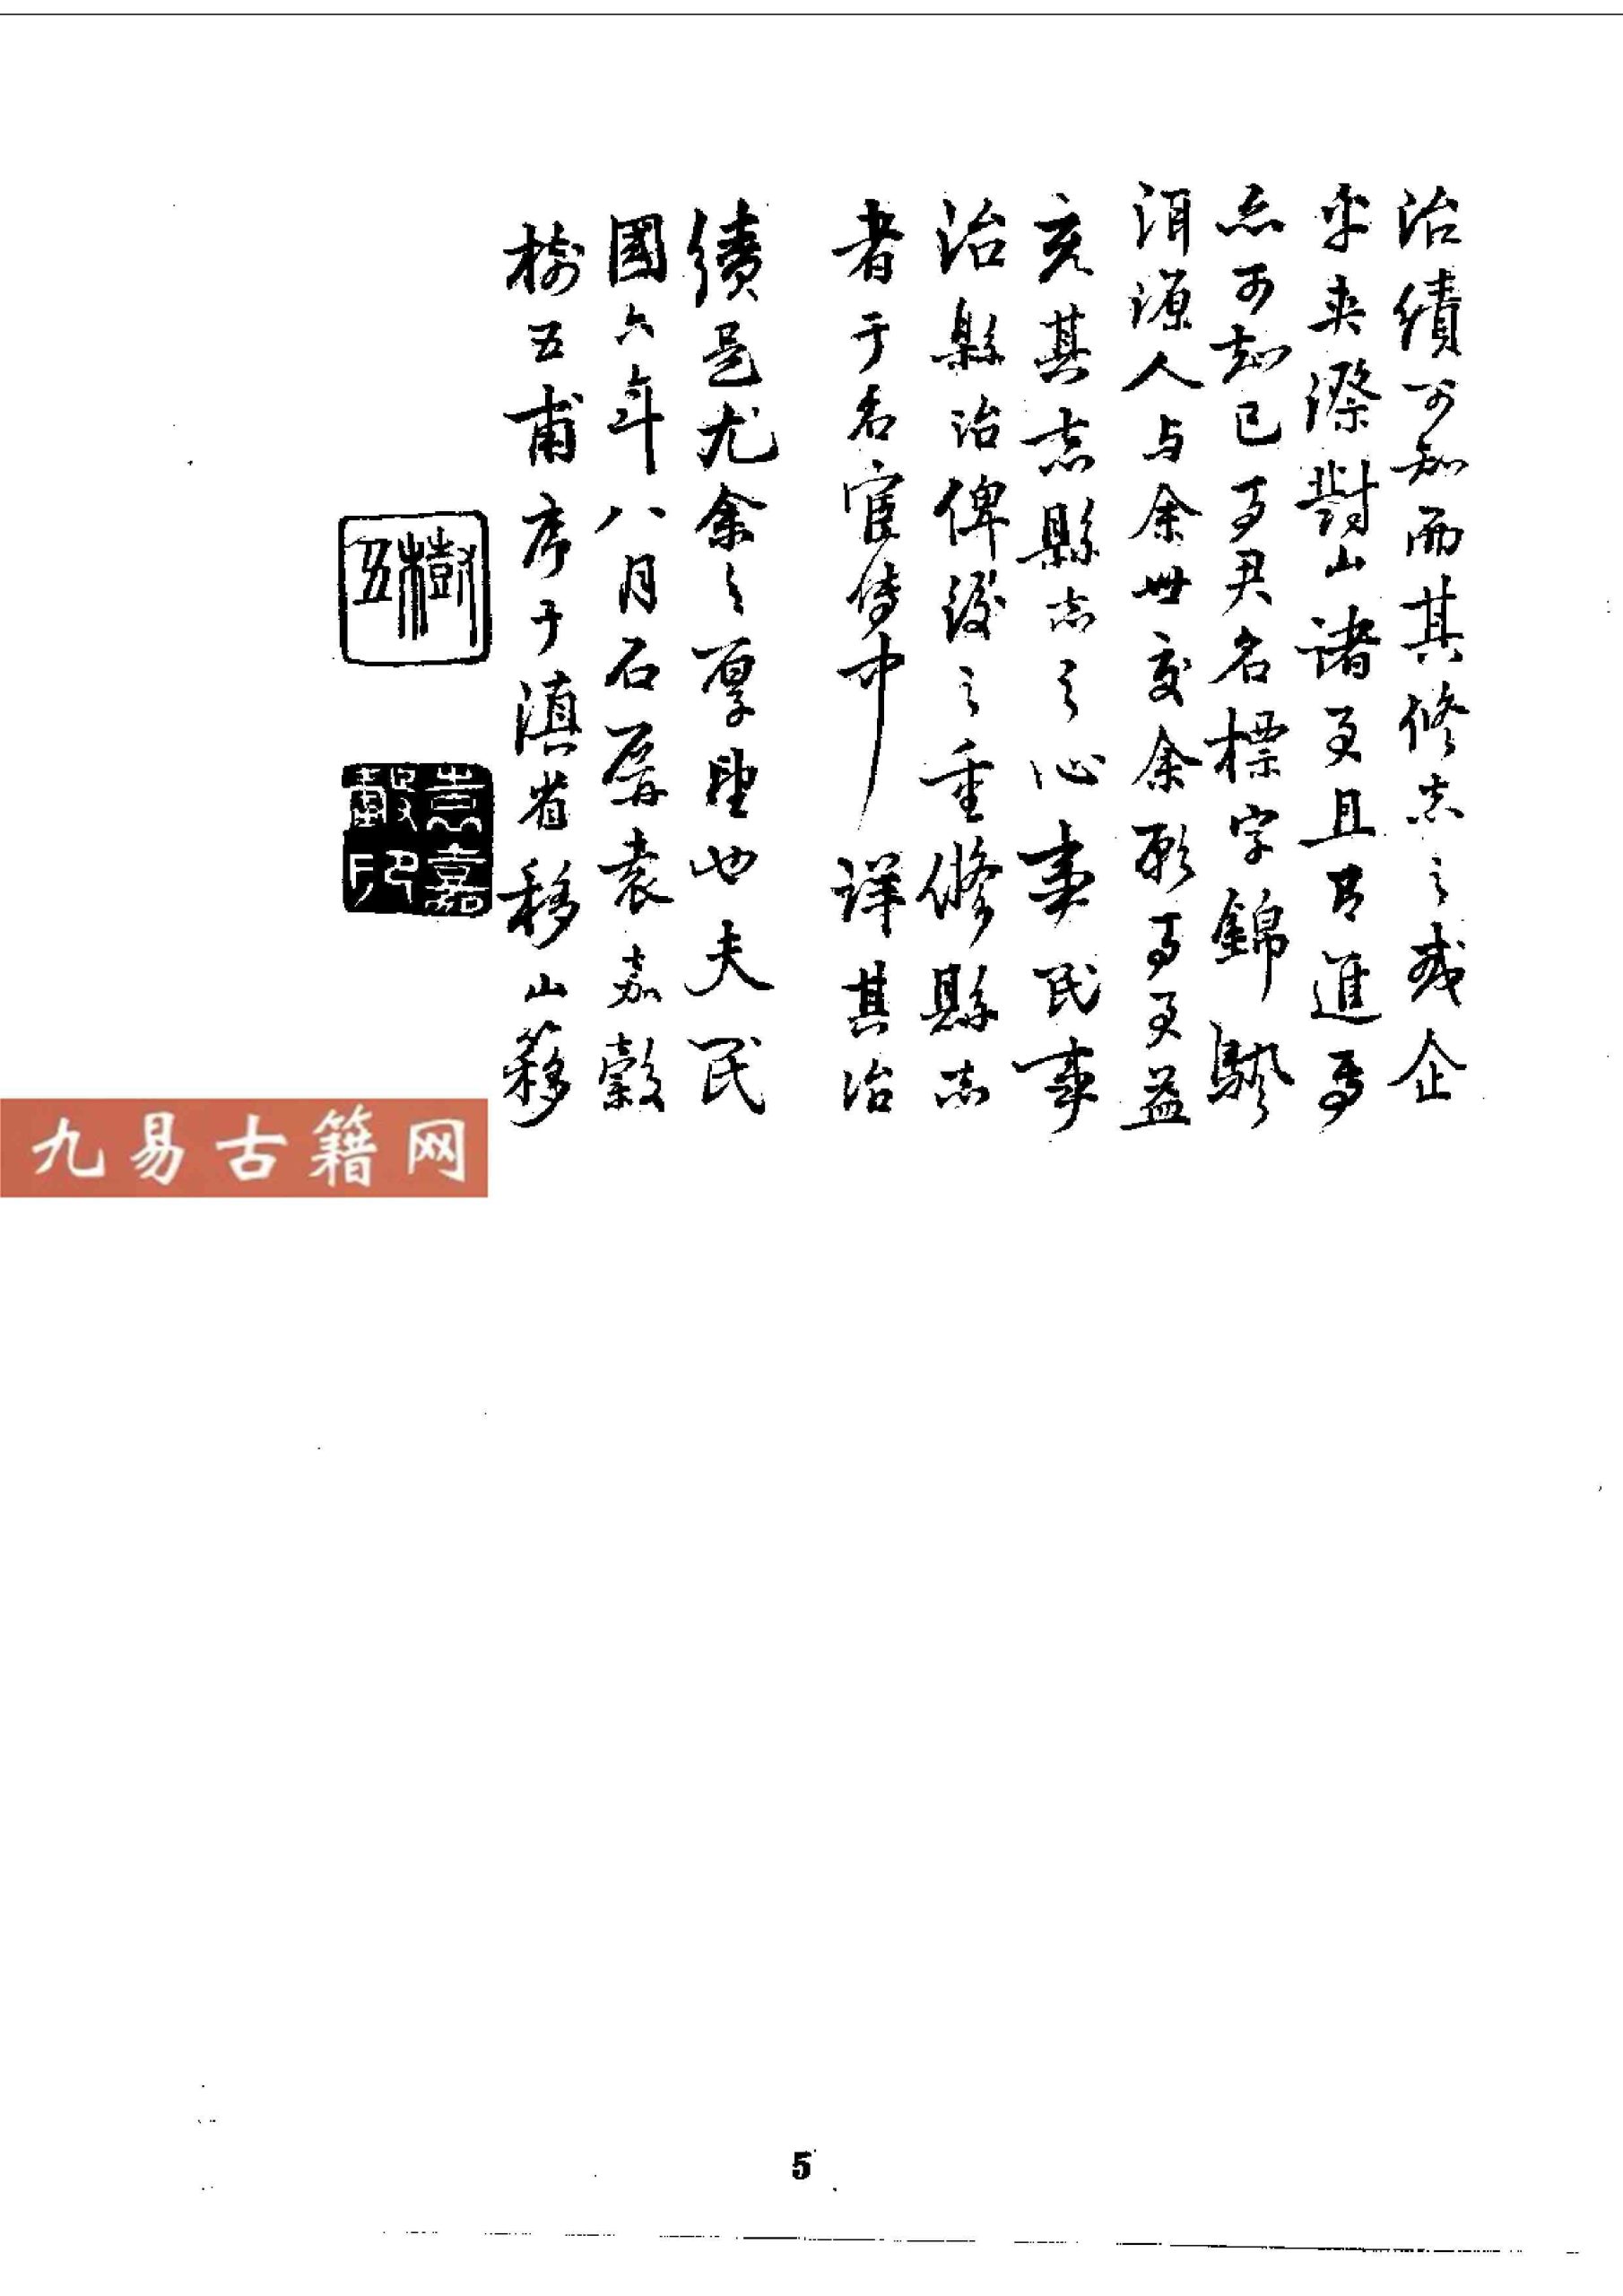 治績可知而其修志之或企
乎夾漈對山諸君且有進焉
亦可知已馬君名標字錦驂
洱源人与余世交余願馬君益
充其志縣志之心事民事
治縣治俾後之重修縣志
者于名宦傳中詳其治
績是尤余之厚望也夫民
國六年八月石屏袁嘉穀
樹五甫序于滇省移山簃
樹五
袁嘉穀印
九易古籍网
5